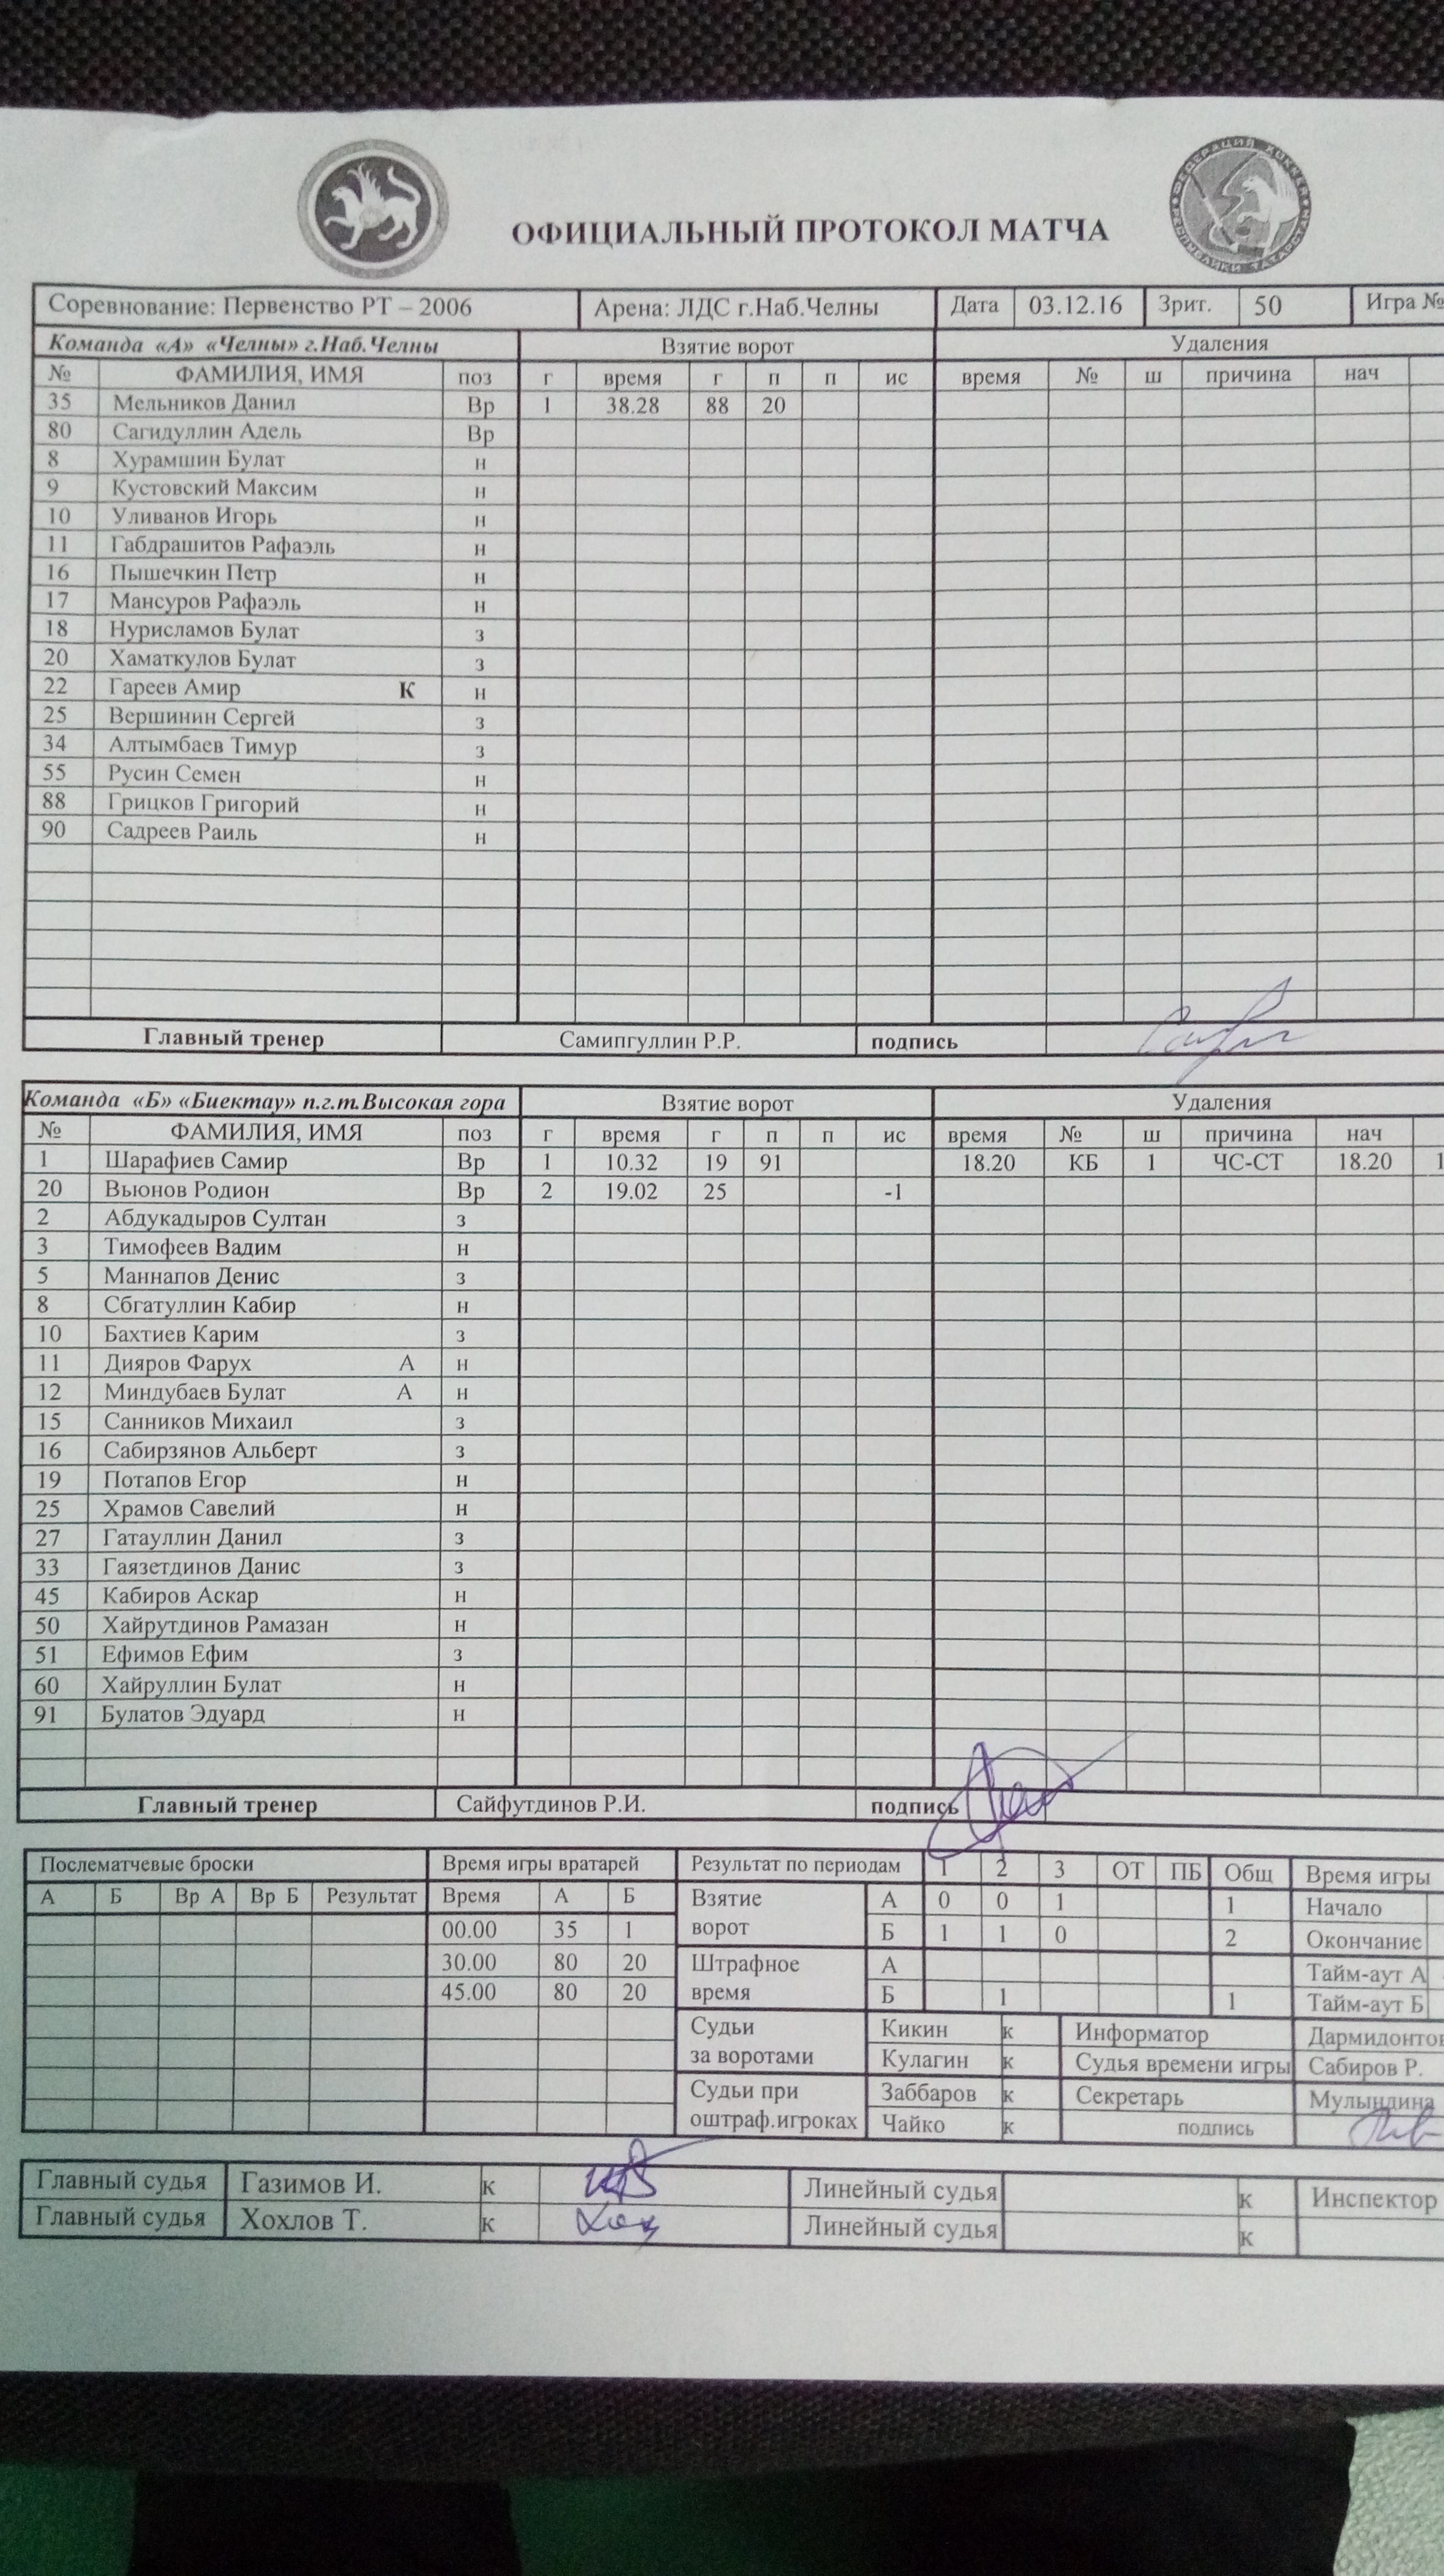 ФЕДЕРАЦИЯ ХОККЕЯ РЕСПУБЛИКИ ТАТАРСТАН
ОФИЦИАЛЬНЫЙ ПРОТОКОЛ МАТЧА
Соревнование: Первенство РТ – 2006 Арена: ЛДС г.Наб.Челны Дата 03.12.16 Зрит. 50 Игра №
Команда «А» «Челны» г.Наб.Челны Взятие ворот Удаления
№ ФАМИЛИЯ, ИМЯ поз г время г п п ис время № ш причина нач
35 Мельников Данил Вр 1 38.28 88 20
80 Сагидуллин Адель Вр
8 Хурамшин Булат н
9 Кустовский Максим н
10 Уливанов Игорь н
11 Габдрашитов Рафаэль н
16 Пышечкин Петр н
17 Мансуров Рафаэль н
18 Нурисламов Булат з
20 Хаматкулов Булат з
22 Гареев Амир К н
25 Вершинин Сергей з
34 Алтымбаев Тимур з
55 Русин Семен н
88 Грицков Григорий н
90 Садреев Раиль н
Главный тренер Самипгуллин Р.Р. подпись
Команда «Б» «Биектау» п.г.т.Высокая гора Взятие ворот Удаления
№ ФАМИЛИЯ, ИМЯ поз г время г п п ис время № ш причина нач
1 Шарафиев Самир Вр 1 10.32 19 91 18.20 КБ 1 ЧС-СТ 18.20 1
20 Вьюнов Родион Вр 2 19.02 25 -1
2 Абдукадыров Султан з
3 Тимофеев Вадим н
5 Маннапов Денис з
8 Сбгатуллин Кабир н
10 Бахтиев Карим з
11 Дияров Фарух А н
12 Миндубаев Булат А н
15 Санников Михаил з
16 Сабирзянов Альберт з
19 Потапов Егор н
25 Храмов Савелий н
27 Гатауллин Данил з
33 Гаязетдинов Данис з
45 Кабиров Аскар н
50 Хайрутдинов Рамазан н
51 Ефимов Ефим з
60 Хайруллин Булат н
91 Булатов Эдуард н
Главный тренер Сайфутдинов Р.И. подпись
Послематчевые броски Время игры вратарей Результат по периодам 1 2 3 ОТ ПБ Общ Время игры
А Б Вр А Вр Б Результат Время А Б Взятие ворот А 0 0 1 1 Начало
00.00 35 1 Б 1 1 0 2 Окончание
30.00 80 20 Штрафное время А Тайм-аут А
45.00 80 20 Б 1 1 Тайм-аут Б
Судьи за воротами Кикин к Информатор Дармидонтов
Кулагин к Судья времени игры Сабиров Р.
Судьи при оштраф.игроках Заббаров к Секретарь Мулындина
Чайко к подпись
Главный судья Газимов И. к Линейный судья к Инспектор
Главный судья Хохлов Т. к Линейный судья к